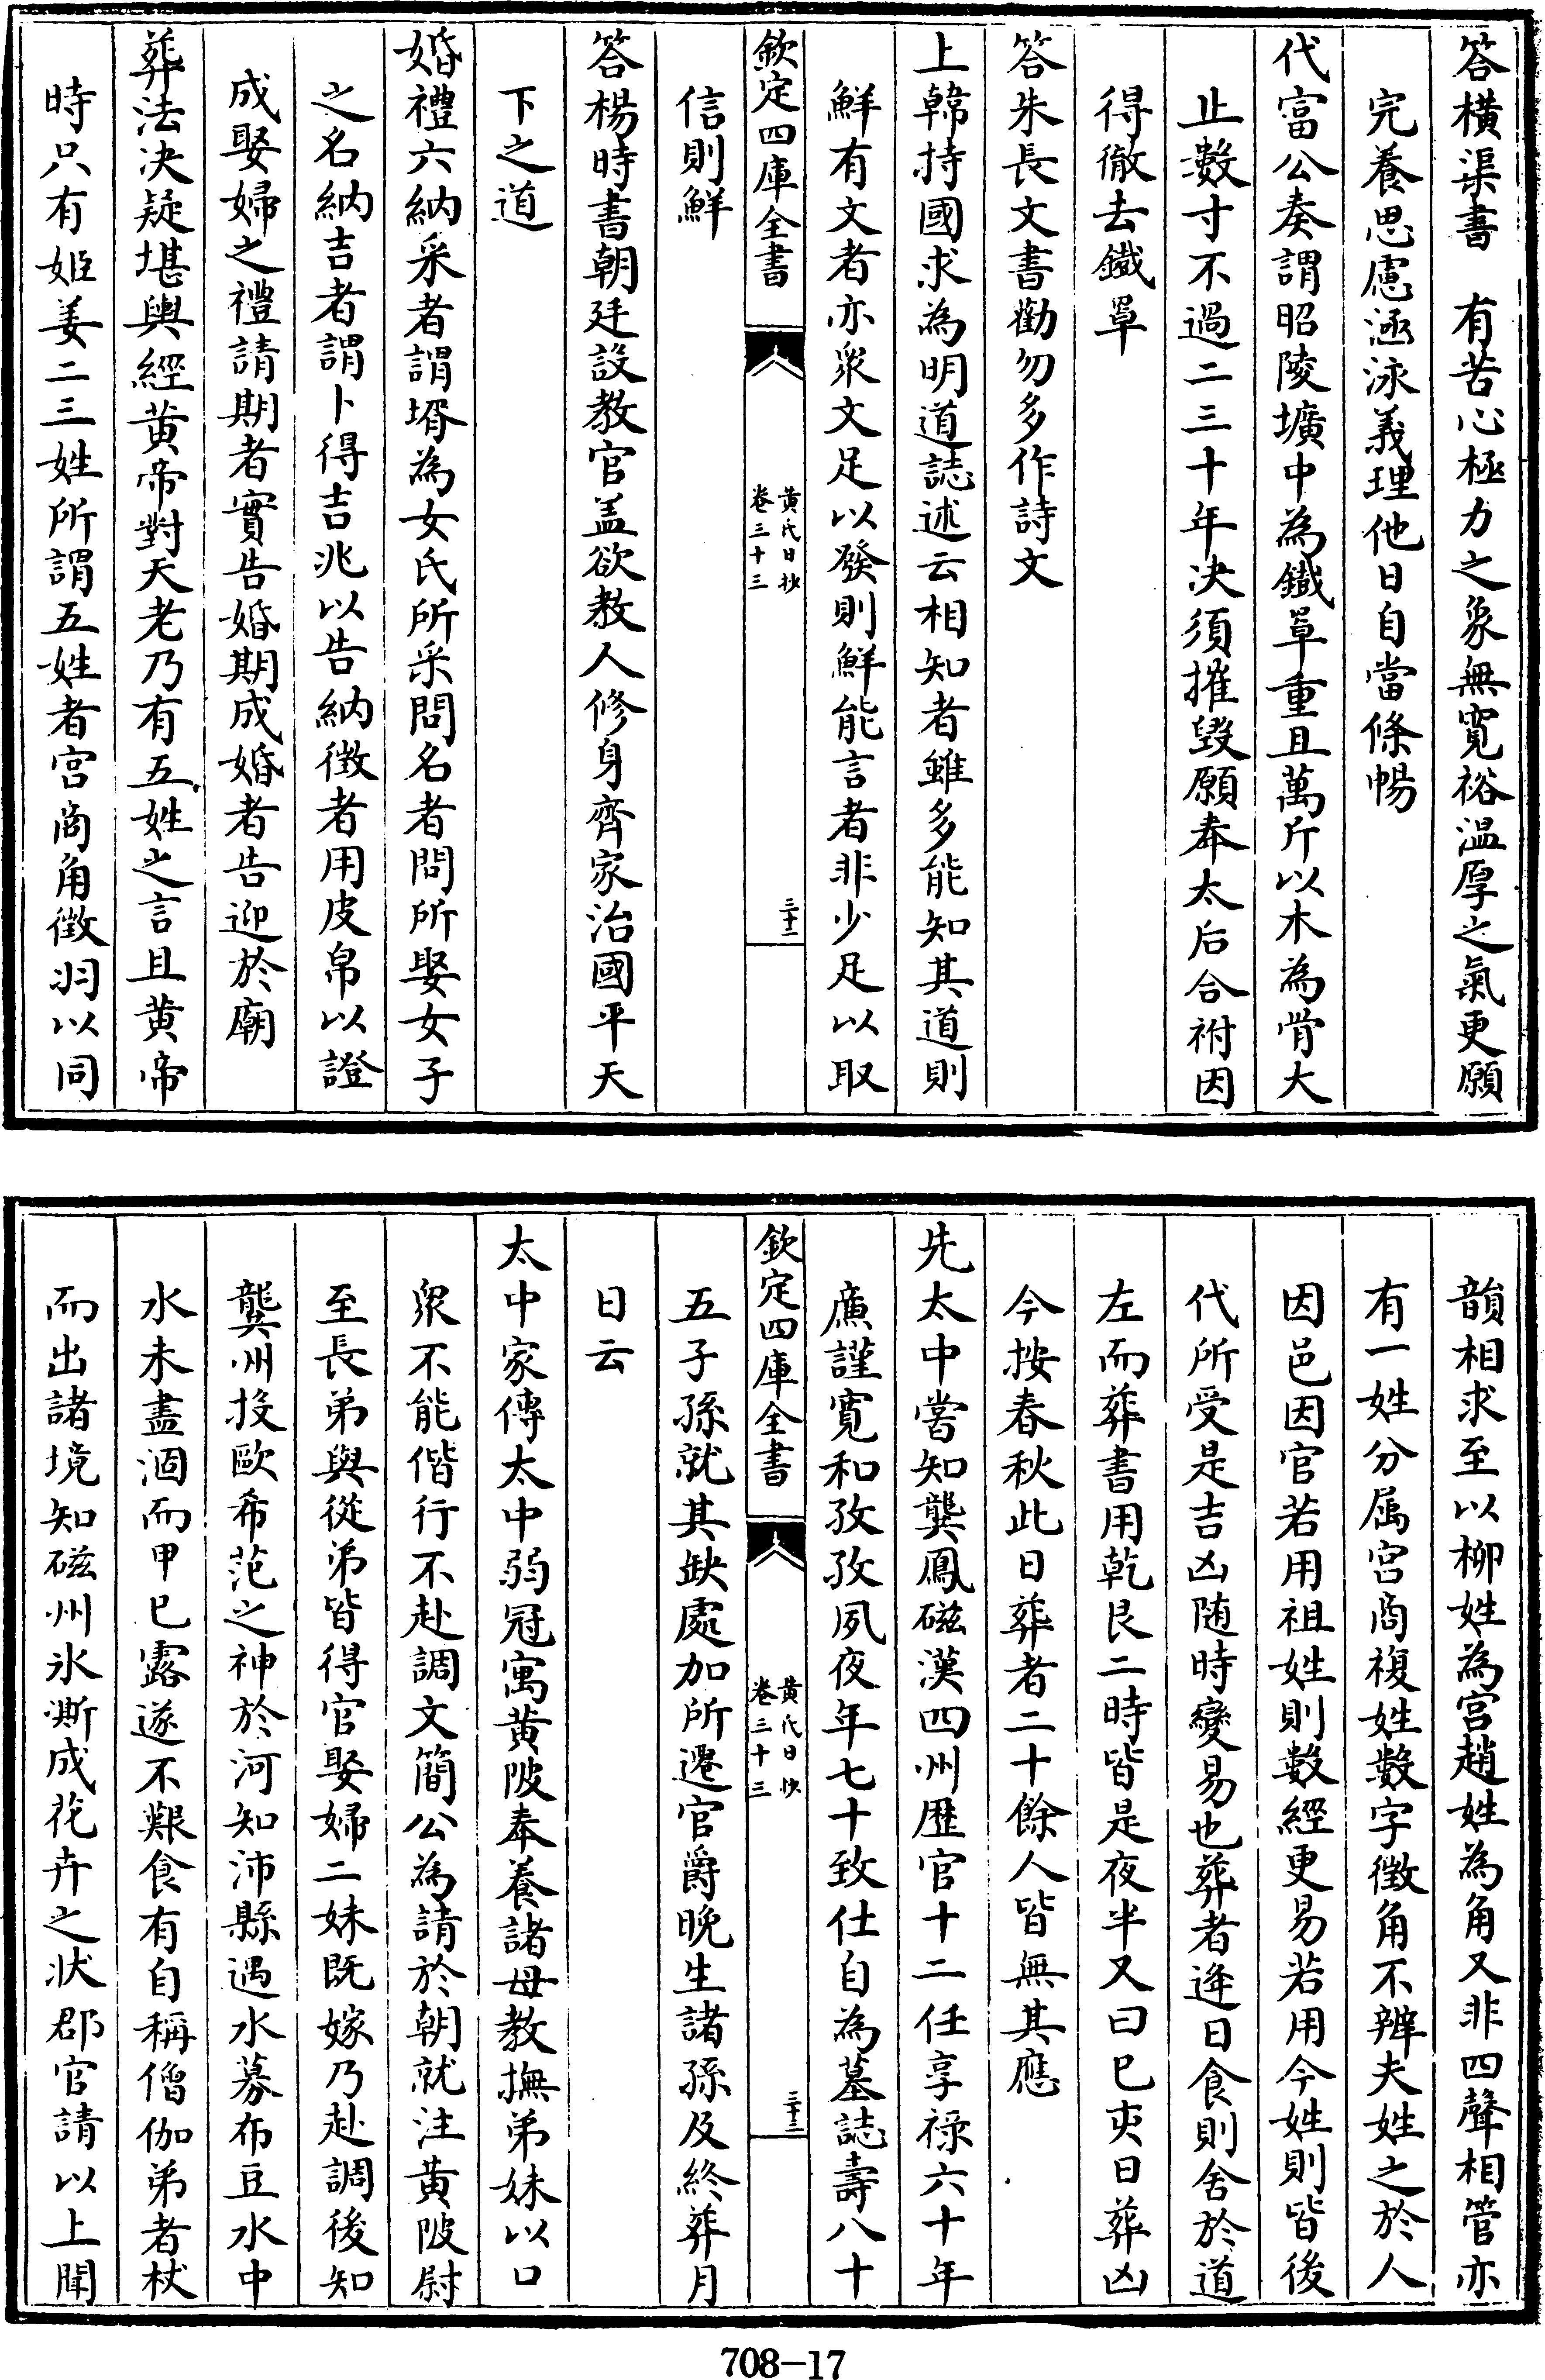 答橫渠書　有苦心極力之象無寛裕温厚之氣更願
完養思慮涵泳義理他日自當條暢
代富公奏謂昭陵壙中為鐵罩重且萬斤以木為骨大
止數寸不過二三十年决須摧毀願奉太后合祔因
得徹去鐵罩
答朱長文書勸勿多作詩文
上韓持國求為明道誌述云相知者雖多能知其道則
鮮有文者亦衆文足以發則鮮能言者非少足以取
欽定四庫全書
黄氏日抄
卷三十三
三十二
信則鮮
答楊時書朝廷設教官盖欲教人修身齊家治國平天
下之道
婚禮六納采者謂壻為女氏所采問名者問所娶女子
之名納吉者謂卜得吉兆以告納徴者用皮帛以證
成娶婦之禮請期者實告婚期成婚者告迎於廟
葬法决疑堪輿經黄帝對天老乃有五姓之言且黄帝
時只有姬姜二三姓所謂五姓者宫商角徴羽以同
韻相求至以柳姓為宫趙姓為角又非四聲相管亦
有一姓分属宫商複姓數字徴角不辨夫姓之於人
因邑因官若用祖姓則數經更易若用今姓則皆後
代所受是吉凶随時變易也葬者逢日食則舍於道
左而葬書用乾艮二時皆是夜半又曰巳亥日葬凶
今按春秋此日葬者二十餘人皆無其應
先太中嘗知龔鳳磁漢四州歴官十二任享祿六十年
廉謹寛和孜孜夙夜年七十致仕自為墓誌壽八十
欽定四庫全書
黄氏日抄
卷三十三
三十三
五子孫就其缺處加所遷官爵晚生諸孫及終葬月
日云
太中家傳太中弱冠寓黄陂奉養諸母教撫弟妹以口
衆不能偕行不赴調文簡公為請於朝就注黄陂尉
至長弟與從弟皆得官娶婦二妹既嫁乃赴調後知
龔州投歐希范之神於河知沛縣遇水募布豆水中
水未盡涸而甲已露遂不艱食有自稱僧伽弟者杖
而出諸境知磁州氷澌成花卉之状郡官請以上聞
708-17